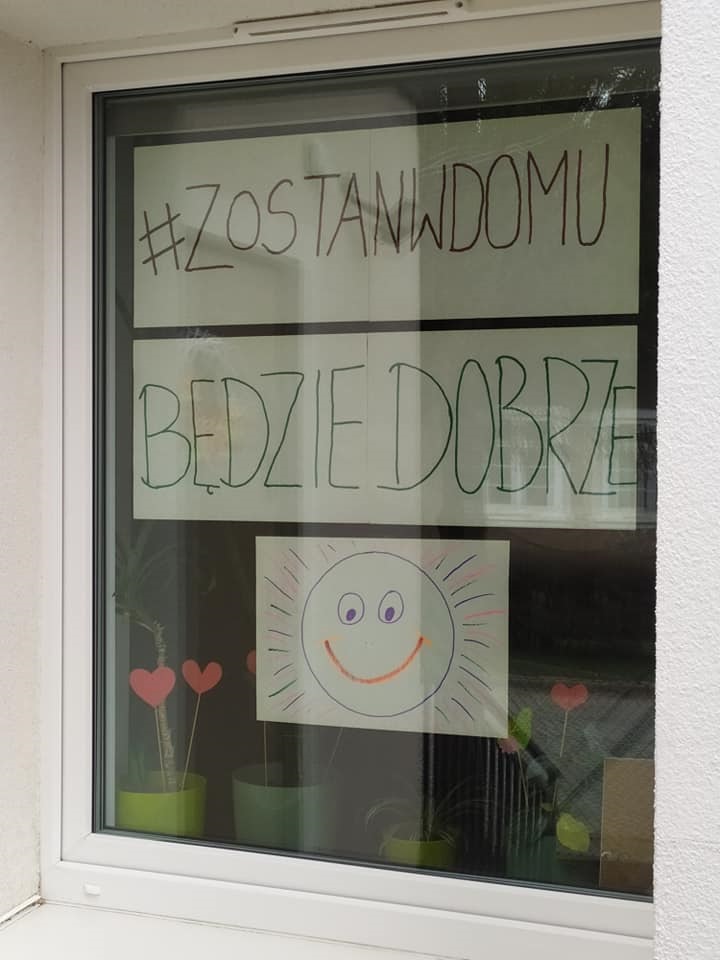 #ZOSTANWDOMU
BĘDZIE DOBRZE